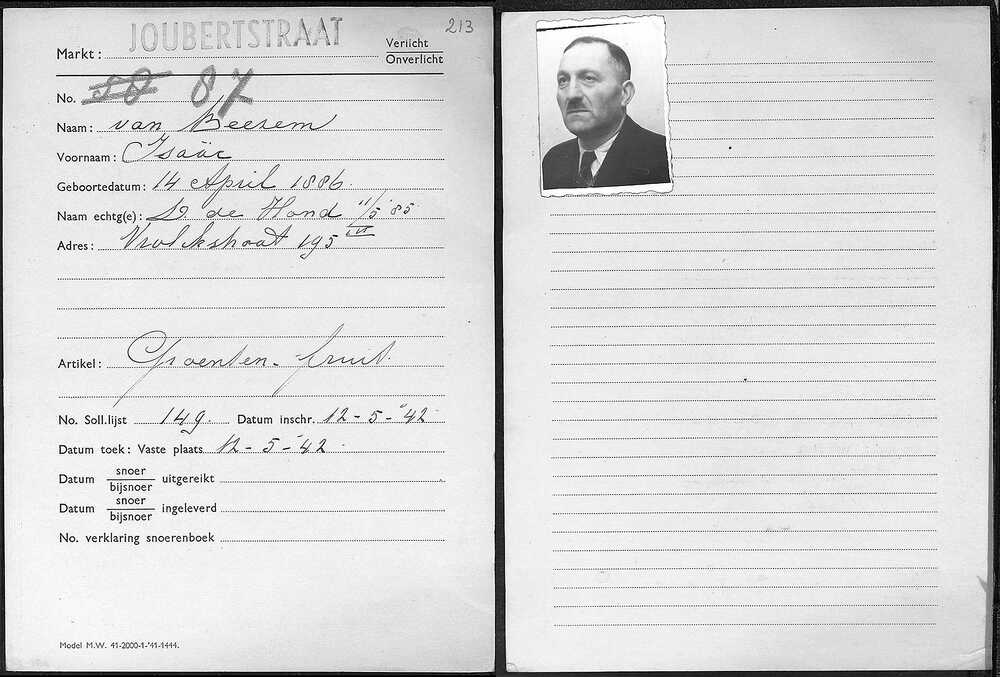 213
Markt: JOUBERTSTRAAT Verlicht
Onverlicht
No. 58 87
Naam: van Beerem
Voornaam: Isaäc
Geboortedatum: 14 April 1886.
Naam echtg(e): D. de Hond 11/5 '85
Adres: Vrolikstraat 195 III
Artikel: Groenten- fruit.
No. Soll.lijst 149. Datum inschr. 12-5-'42
Datum toek: Vaste plaats 12-5-'42.
Datum snoer
bijsnoer uitgereikt
Datum snoer
bijsnoer ingeleverd
No. verklaring snoerenboek
Model M.W. 41-2000-1-'41-1444.